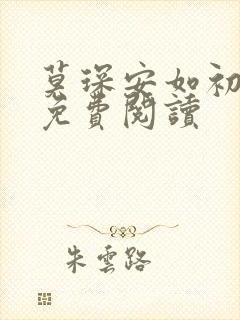 莫琛安如初
免費閱讀
朱雲路